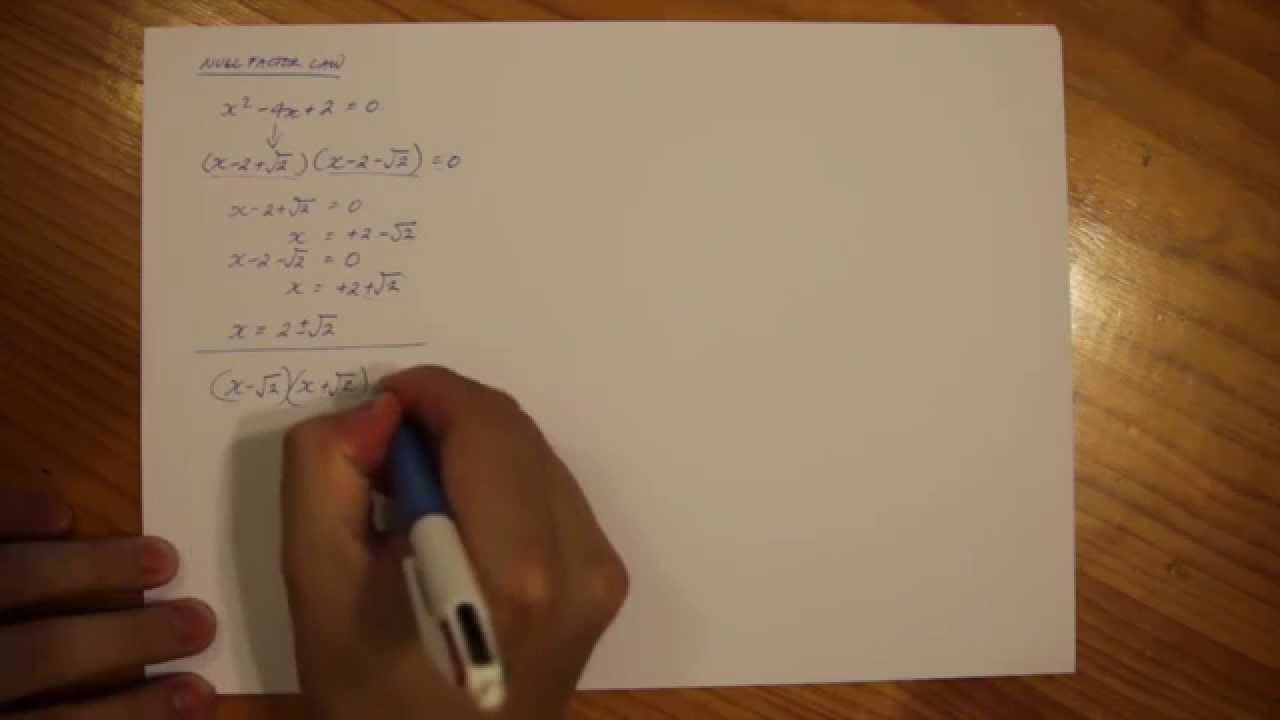 NULL FACTOR LAW
x² - 4x + 2 = 0
↓
(x-2+√2)(x-2-√2) = 0
x-2+√2 = 0
x = +2-√2
x-2-√2 = 0
x = +2+√2
x = 2±√2
(x-√2)(x+√2)